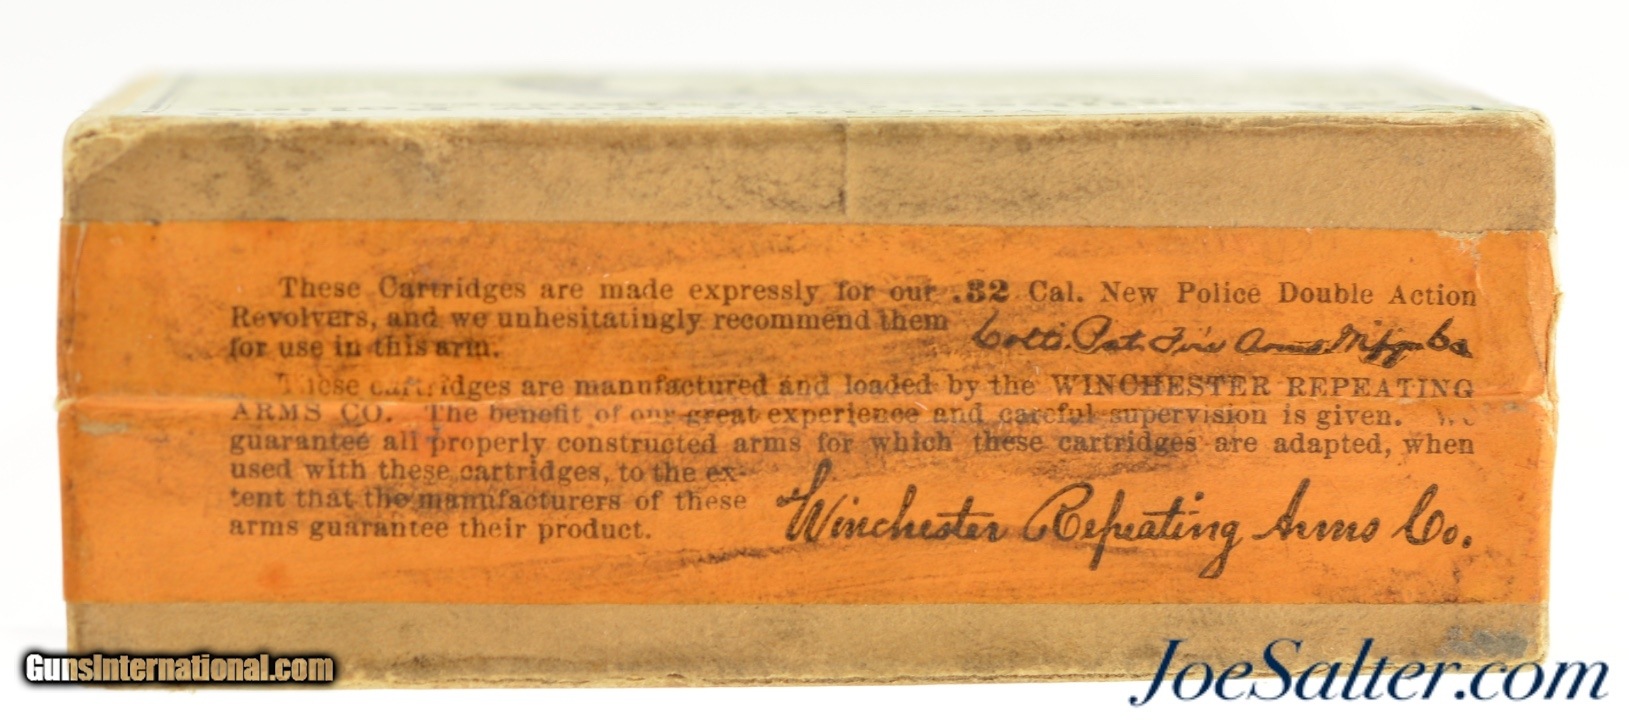 These Cartridges are made expressly for our .32 Cal. New Police Double Action
Revolvers, and we unhesitatingly recommend them
for use in this arm.
Colt's Pat. Fire Arms Mf'g Co
These cartridges are manufactured and loaded by the WINCHESTER REPEATING
ARMS CO. The benefit of our great experience and careful supervision is given. We
guarantee all properly constructed arms for which these cartridges are adapted, when
used with these cartridges, to the ex-
tent that the manufacturers of these
arms guarantee their product.
Winchester Repeating Arms Co.
GunsInternational.com
JoeSalter.com